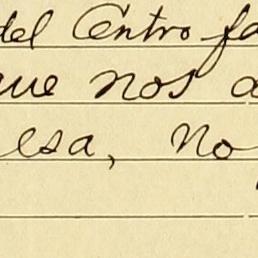 del Centro fa
que nos a
esa, No